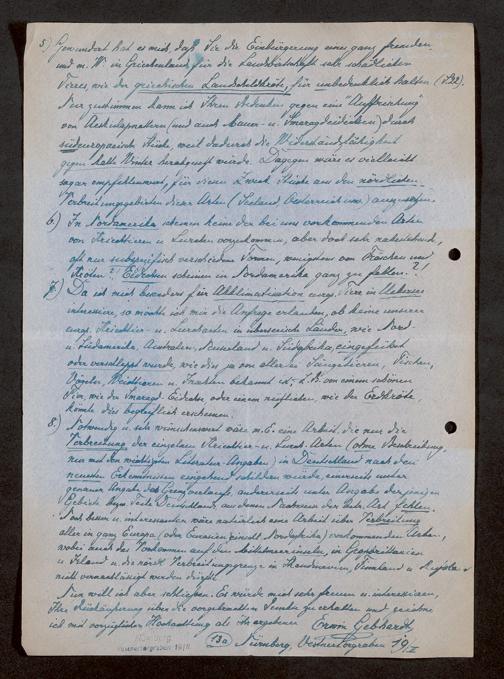 5) Gewundert hat es mich, daß Sie die Einbürgerung eines ganz fremden
und m. W. in Griechenland für die Landwirtschaft sehr schädlichen
Tieres, wie der griechischen Landschildkröte, für unbedenklich halten
Nur zustimmen kann ich Ihren Bedenken gegen eine "Auffrischung"
von Aeskulapnattern (und auch Mauer- u. Smaragdeidechsen) durch
südeuropäische Stücke, weil dadurch die Widerstandsfähigkeit
gegen kalte Winter herabgesetzt würde. Dagegen wäre es vielleicht
sogar empfehlenswert, für diesen Zweck Stücke aus den nördlichen
Verbreitungsgebieten dieser Arten auszusetzen.
6.) In Nordamerika scheinen keine der bei uns vorkommenden Arten
von Kriechtieren u. Lurchen vorzukommen, aber doch sehr nahestehende,
oft nur subspezifisch verschiedene Formen, wenigstens von Fröschen und
Kröten. Eidechsen scheinen in Nordamerika ganz zu fehlen.?!
7.) Da ich mich besonders für Akklimatisation europ. Tiere in Uebersee
interessiere, so möchte ich mir die Anfrage erlauben, ob keine unserer
europ. Kriechtier- u. Lurcharten in überseeische Länder, wie Nord-
u. Südamerika, Australien, Neuseeland u. Südafrika, eingeführt
oder verschleppt wurde, wie dies ja von allerlei Säugetieren, Fischen,
Vögeln, Weichtieren u. Insekten bekannt ist. Z. B. von einem schönen
Tier, wie der Smaragd-Eidechse, oder einem nützlichen, wie der Erdkröte
könnte dies begreiflich erscheinen.
8.) Notwendig u. sehr wünschenswert wäre m. E. eine Arbeit, die nur die
Verbreitung der einzelnen Kriechtier- u. Lurch-Arten (ohne Beschreibung,
nur mit den wichtigsten Literatur-Angaben) in Deutschland nach den
neuesten Erkenntnissen eingehend schildern würde, einerseits unter
genauer Angabe des Grenzverlaufs, andererseits unter Angabe derjenigen
Gebiete bezw. Teile Deutschlands, aus denen Nachweise der betr. Art fehlen.
Noch besser u. interessanter wäre natürlich eine Arbeit über Verbreitung
aller in ganz Europa (oder Eurasien einschl. Nordafrika) vorkommenden Arten,
wobei auch das Vorkommen auf den Mittelmeerinseln, in Grossbritannien
u. Irland u. die nördl. Verbreitungsgrenze in Skandinavien, Finnland u.
nicht vernachlässigt werden dürfte.
Nun will ich aber schliessen. Es würde mich sehr freuen u. interessieren,
Ihre Rückäußerung über die vorgebrachten Punkte zu erhalten und zeichne
ich mit vorzüglicher Hochachtung als Ihr ergebener Erwin Gebhardt
(13a) Nürnberg, Vestnertorgraben 19/II
Nürnberg
Vestnertorgraben 19/II